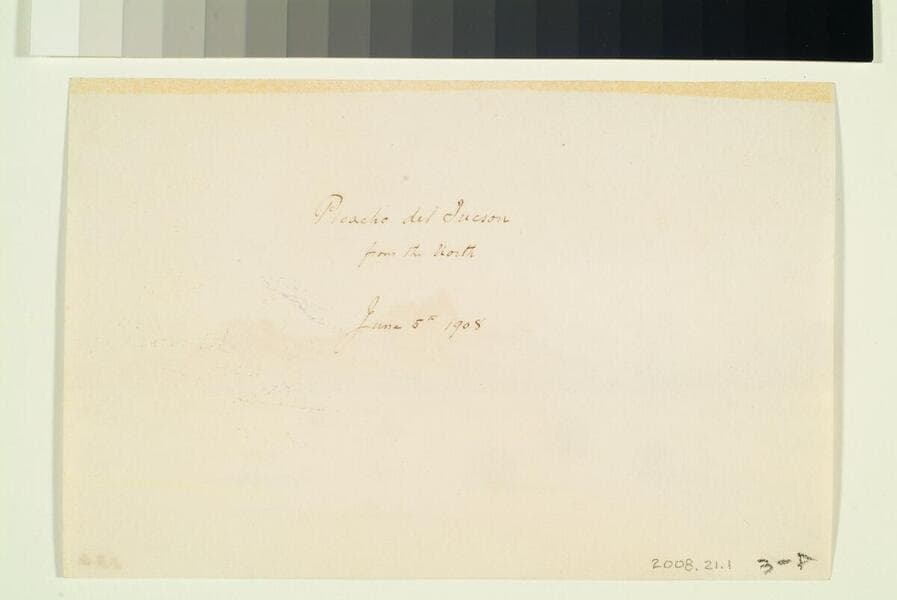 Picacho del Tucson
from the North
June 5th 1908
2008.21.1